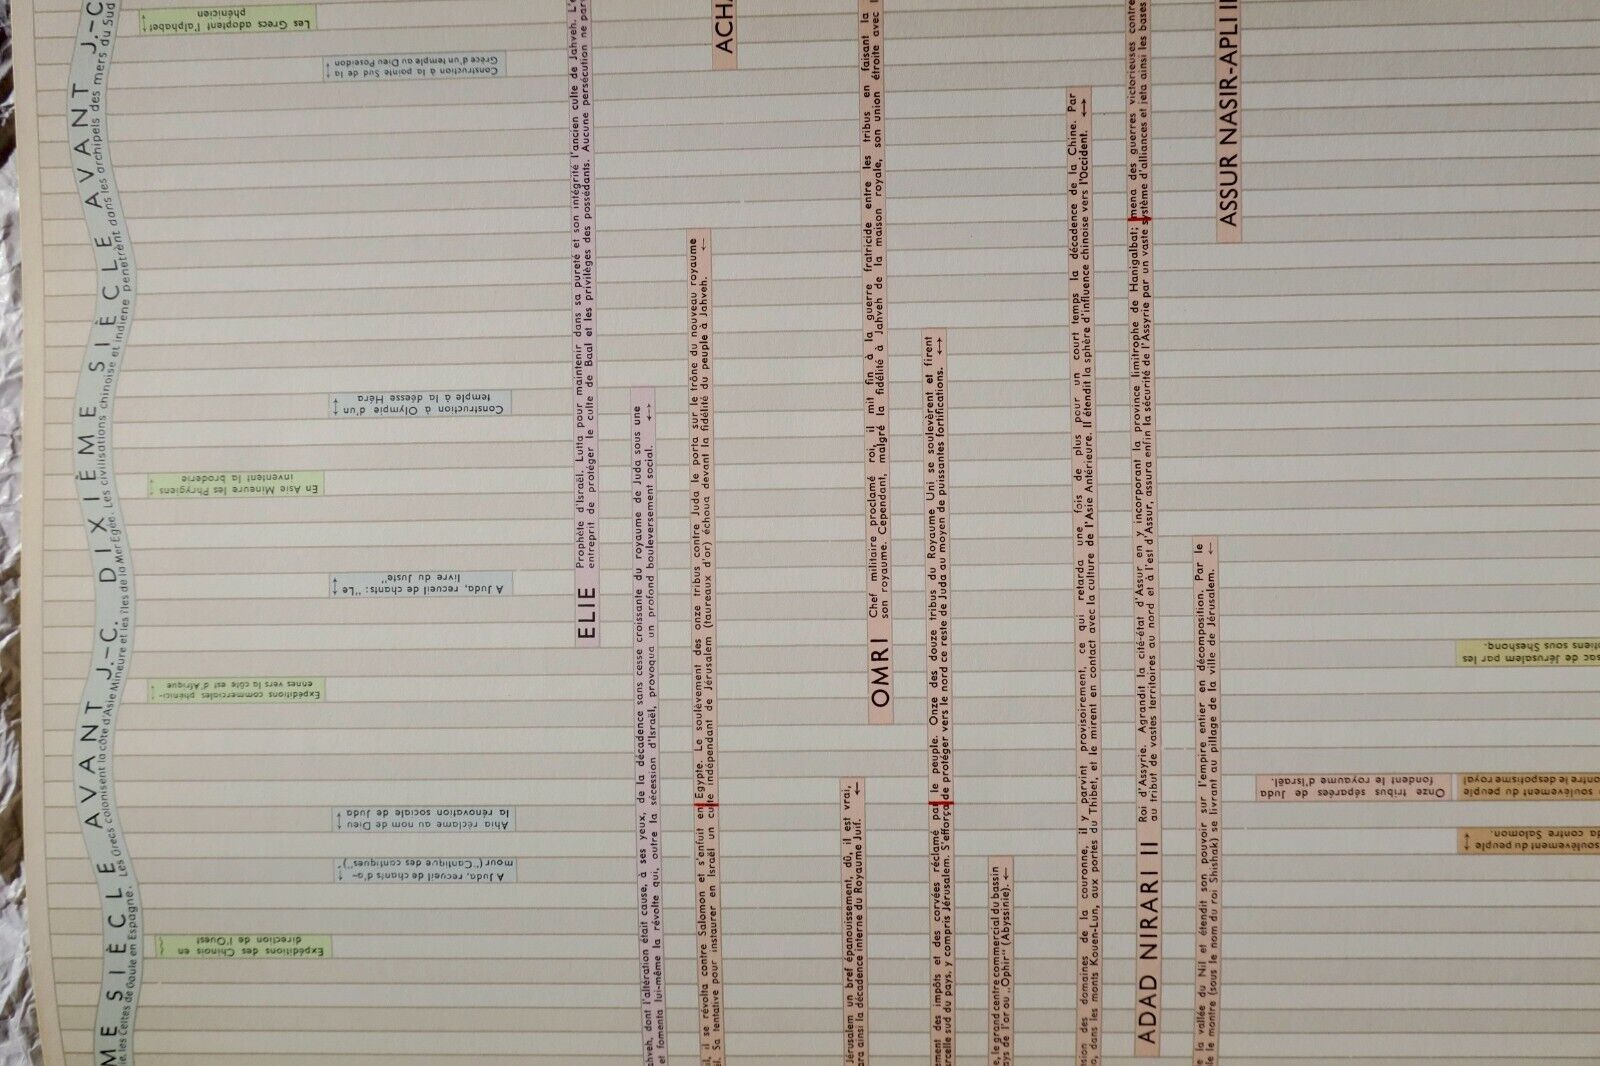 ME SIÈCLE AVANT J.-C. DIXIÈME SIÈCLE AVANT J.-C
les Celtes de Gaule en Espagne. Les Grecs colonisent la côte d'Asie Mineure et les îles de la Mer Egée. Les civilisations chinoise et indienne penetrèrent dans les archipels des mers du Sud
Les Grecs adoptent l'alphabet
phénicien
En Asie Mineure les Phrygiens
inventent la broderie
Expéditions commerciales phénici-
ennes vers la côte est d'Afrique
Expéditions des Chinois en
direction de l'Ouest
Construction à la pointe Sud de la
Grèce d'un temple au Dieu Poseidon
Construction à Olympie d'un
temple à la déesse Héra
A Juda, recueil de chants: "Le
livre du Juste"
Ahia réclame au nom de Dieu
la rénovation sociale de Juda
A Juda, recueil de chants d'a-
mour ("Cantique des cantiques")
ELIE
Prophète d'Israël. Lutta pour maintenir dans sa pureté et son intégrité l'ancien culte de Jahveh. L'
entreprit de protéger le culte de Baal et les privilèges des possédants. Aucune persécution ne par
ahveh, dont l'altération était cause, à ses yeux, de la décadence sans cesse croissante du royaume de Juda sous une
et fomenta lui-même la révolte qui, outre la sécession d'Israël, provoqua un profond bouleversement social. ←→
il, il se révolta contre Salomon et s'enfuit en Egypte. Le soulèvement des onze tribus contre Juda le porta sur le trône du nouveau royaume
il. Sa tentative pour instaurer en Israël un culte indépendant de Jérusalem (taureaux d'or) échoua devant la fidélité du peuple à Jahveh. ←
ACHA
Jérusalem un bref épanouissement, dû, il est vrai,
ara ainsi la décadence interne du Royaume Juif. ←
OMRI
Chef militaire proclamé roi, il mit fin à la guerre fratricide entre les tribus en faisant la
son royaume. Cependant, malgré la fidélité à Jahveh de la maison royale, son union étroite avec
ement des impôts et des corvées réclamé par le peuple. Onze des douze tribus du Royaume Uni se soulevèrent et firent
arcelle sud du pays, y compris Jérusalem. S'efforça de protéger vers le nord ce reste de Juda au moyen de puissantes fortifications. ←→
e, le grand centre commercial du bassin
ays de l'or ou „Ophir" (Abyssinie). ←
sion des domaines de la couronne, il y parvint provisoirement, ce qui retarda une fois de plus pour un court temps la décadence de la Chine. Par
a, dans les monts Kouen-Lun, aux portes du Thibet, et le mirent en contact avec la culture de l'Asie Antérieure. Il étendit la sphère d'influence chinoise vers l'Occident. ←→
ADAD NIRARI II
Roi d'Assyrie. Agrandit la cité-état d'Assur en y incorporant la province limitrophe de Hanigalbat; mena des guerres victorieuses contre
au tribut de vastes territoires au nord et à l'est d'Assur, assura enfin la sécurité de l'Assyrie par un vaste système d'alliances et jeta ainsi les bases
e la vallée du Nil et étendit son pouvoir sur l'empire entier en décomposition. Par le
le le montre (sous le nom du roi Shishak) se livrant au pillage de la ville de Jérusalem. ←
ASSUR NASIR-APLI II
Onze tribus séparées de Juda
fondent le royaume d'Israël.
sac de Jérusalem par les
tiens sous Sheshonq.
soulèvement du peuple
ontre le despotisme royal
soulèvement du peuple
da contre Salomon.